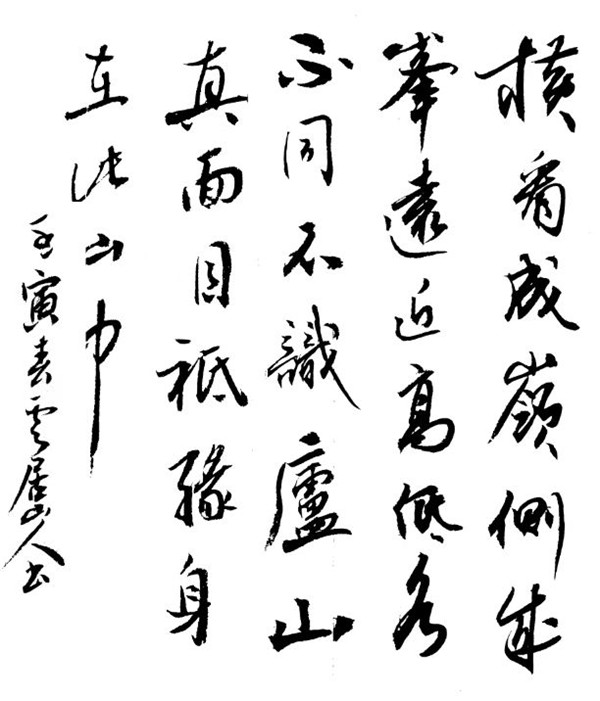 橫看成嶺側成
峯遠近髙低各
不同不識廬山
真面目祗緣身
在此山中
壬寅春雲居山人書